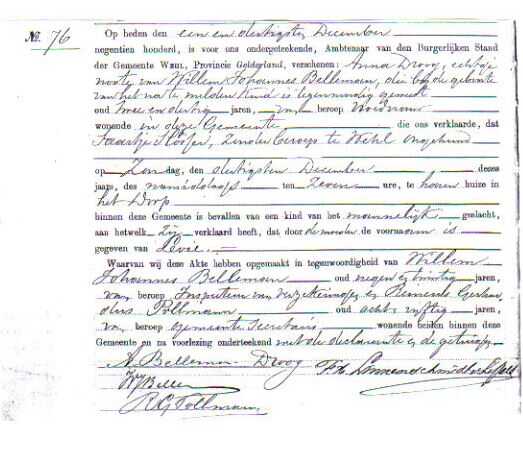 No. 76
Op heden den een en dertigsten December
negentien honderd, is voor ons ondergeteekende, Ambtenaar van den Burgerlijken Stand
der Gemeente Wehl, Provincie Gelderland, verschenen: Anna Droog, echtge
noote van Willem Johannes Belleman, die bij de geboorte
van het na te melden kind is tegenwoordig geweest
oud twee en dertig jaren, van beroep Vroedvrouw
wonende in deze Gemeente die ons verklaarde, dat
zonder beroep te Wehl ongehuwd
op Zondag, den dertigsten December dezes
jaars, des namiddags ten zeven ure, te haren huize in
het Dorp
binnen deze Gemeente is bevallen van een kind van het mannelijk geslacht,
aan hetwelk zij verklaard heeft, dat door de moeder de voornaam is
gegeven van Levie.
Waarvan wij deze Akte hebben opgemaakt in tegenwoordigheid van Willem
Johannes Belleman oud negen en twintig jaren,
van beroep en
Pollmann oud acht en vijftig jaren,
van beroep Gemeente Secretaris, wonende beiden binnen deze
Gemeente en na voorlezing onderteekend met de declarante en de getuigen
A. Belleman Droog
WJ Belleman
R.G. Pollmann